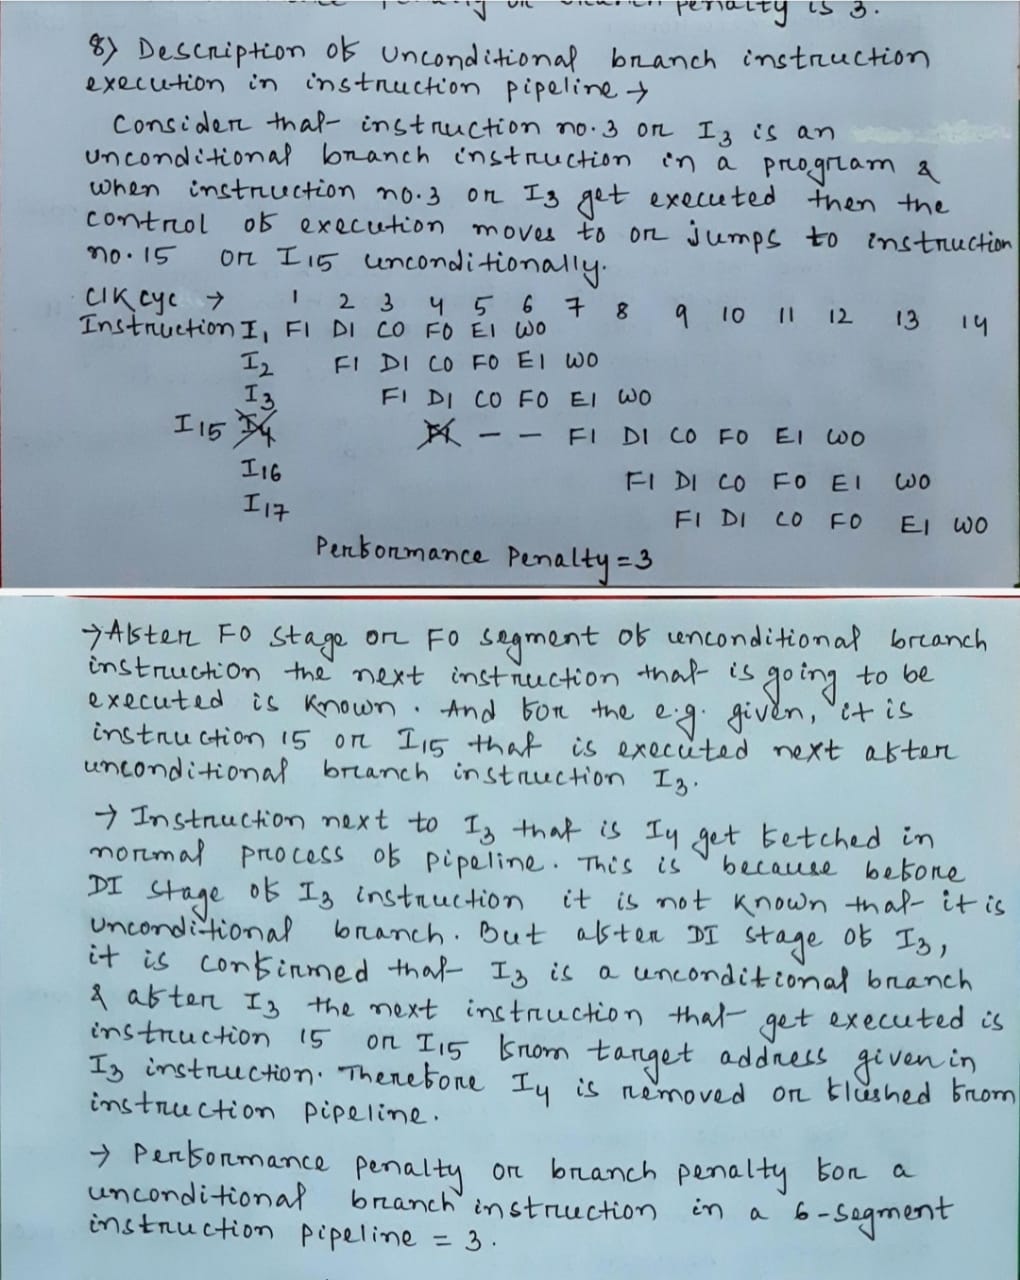 penalty is 3.
8) Description of unconditional branch instruction
execution in instruction pipeline →
Consider that instruction no.3 or I3 is an
unconditional branch instruction in a program &
when instruction no.3 or I3 get executed then the
control of execution moves to or jumps to instruction
no.15 or I15 unconditionally.
Clk cyc → 1 2 3 4 5 6 7 8 9 10 11 12 13 14
Instruction I1 FI DI CO FO EI WO
I2 FI DI CO FO EI WO
I3 FI DI CO FO EI WO
I15 I4 FI — — FI DI CO FO EI WO
I16 FI DI CO FO EI WO
I17 FI DI CO FO EI WO
Performance Penalty = 3
→ After FO stage or FO segment of unconditional branch
instruction the next instruction that is going to be
executed is known. And for the e.g. given, it is
instruction 15 or I15 that is executed next after
unconditional branch instruction I3.
→ Instruction next to I3 that is I4 get fetched in
normal process of pipeline. This is because before
DI stage of I3 instruction it is not known that it is
unconditional branch. But after DI stage of I3,
it is confirmed that I3 is a unconditional branch
& after I3 the next instruction that get executed is
instruction 15 or I15 from target address given in
I3 instruction. Therefore I4 is removed or flushed from
instruction pipeline.
→ Performance penalty or branch penalty for a
unconditional branch instruction in a 6-segment
instruction pipeline = 3.